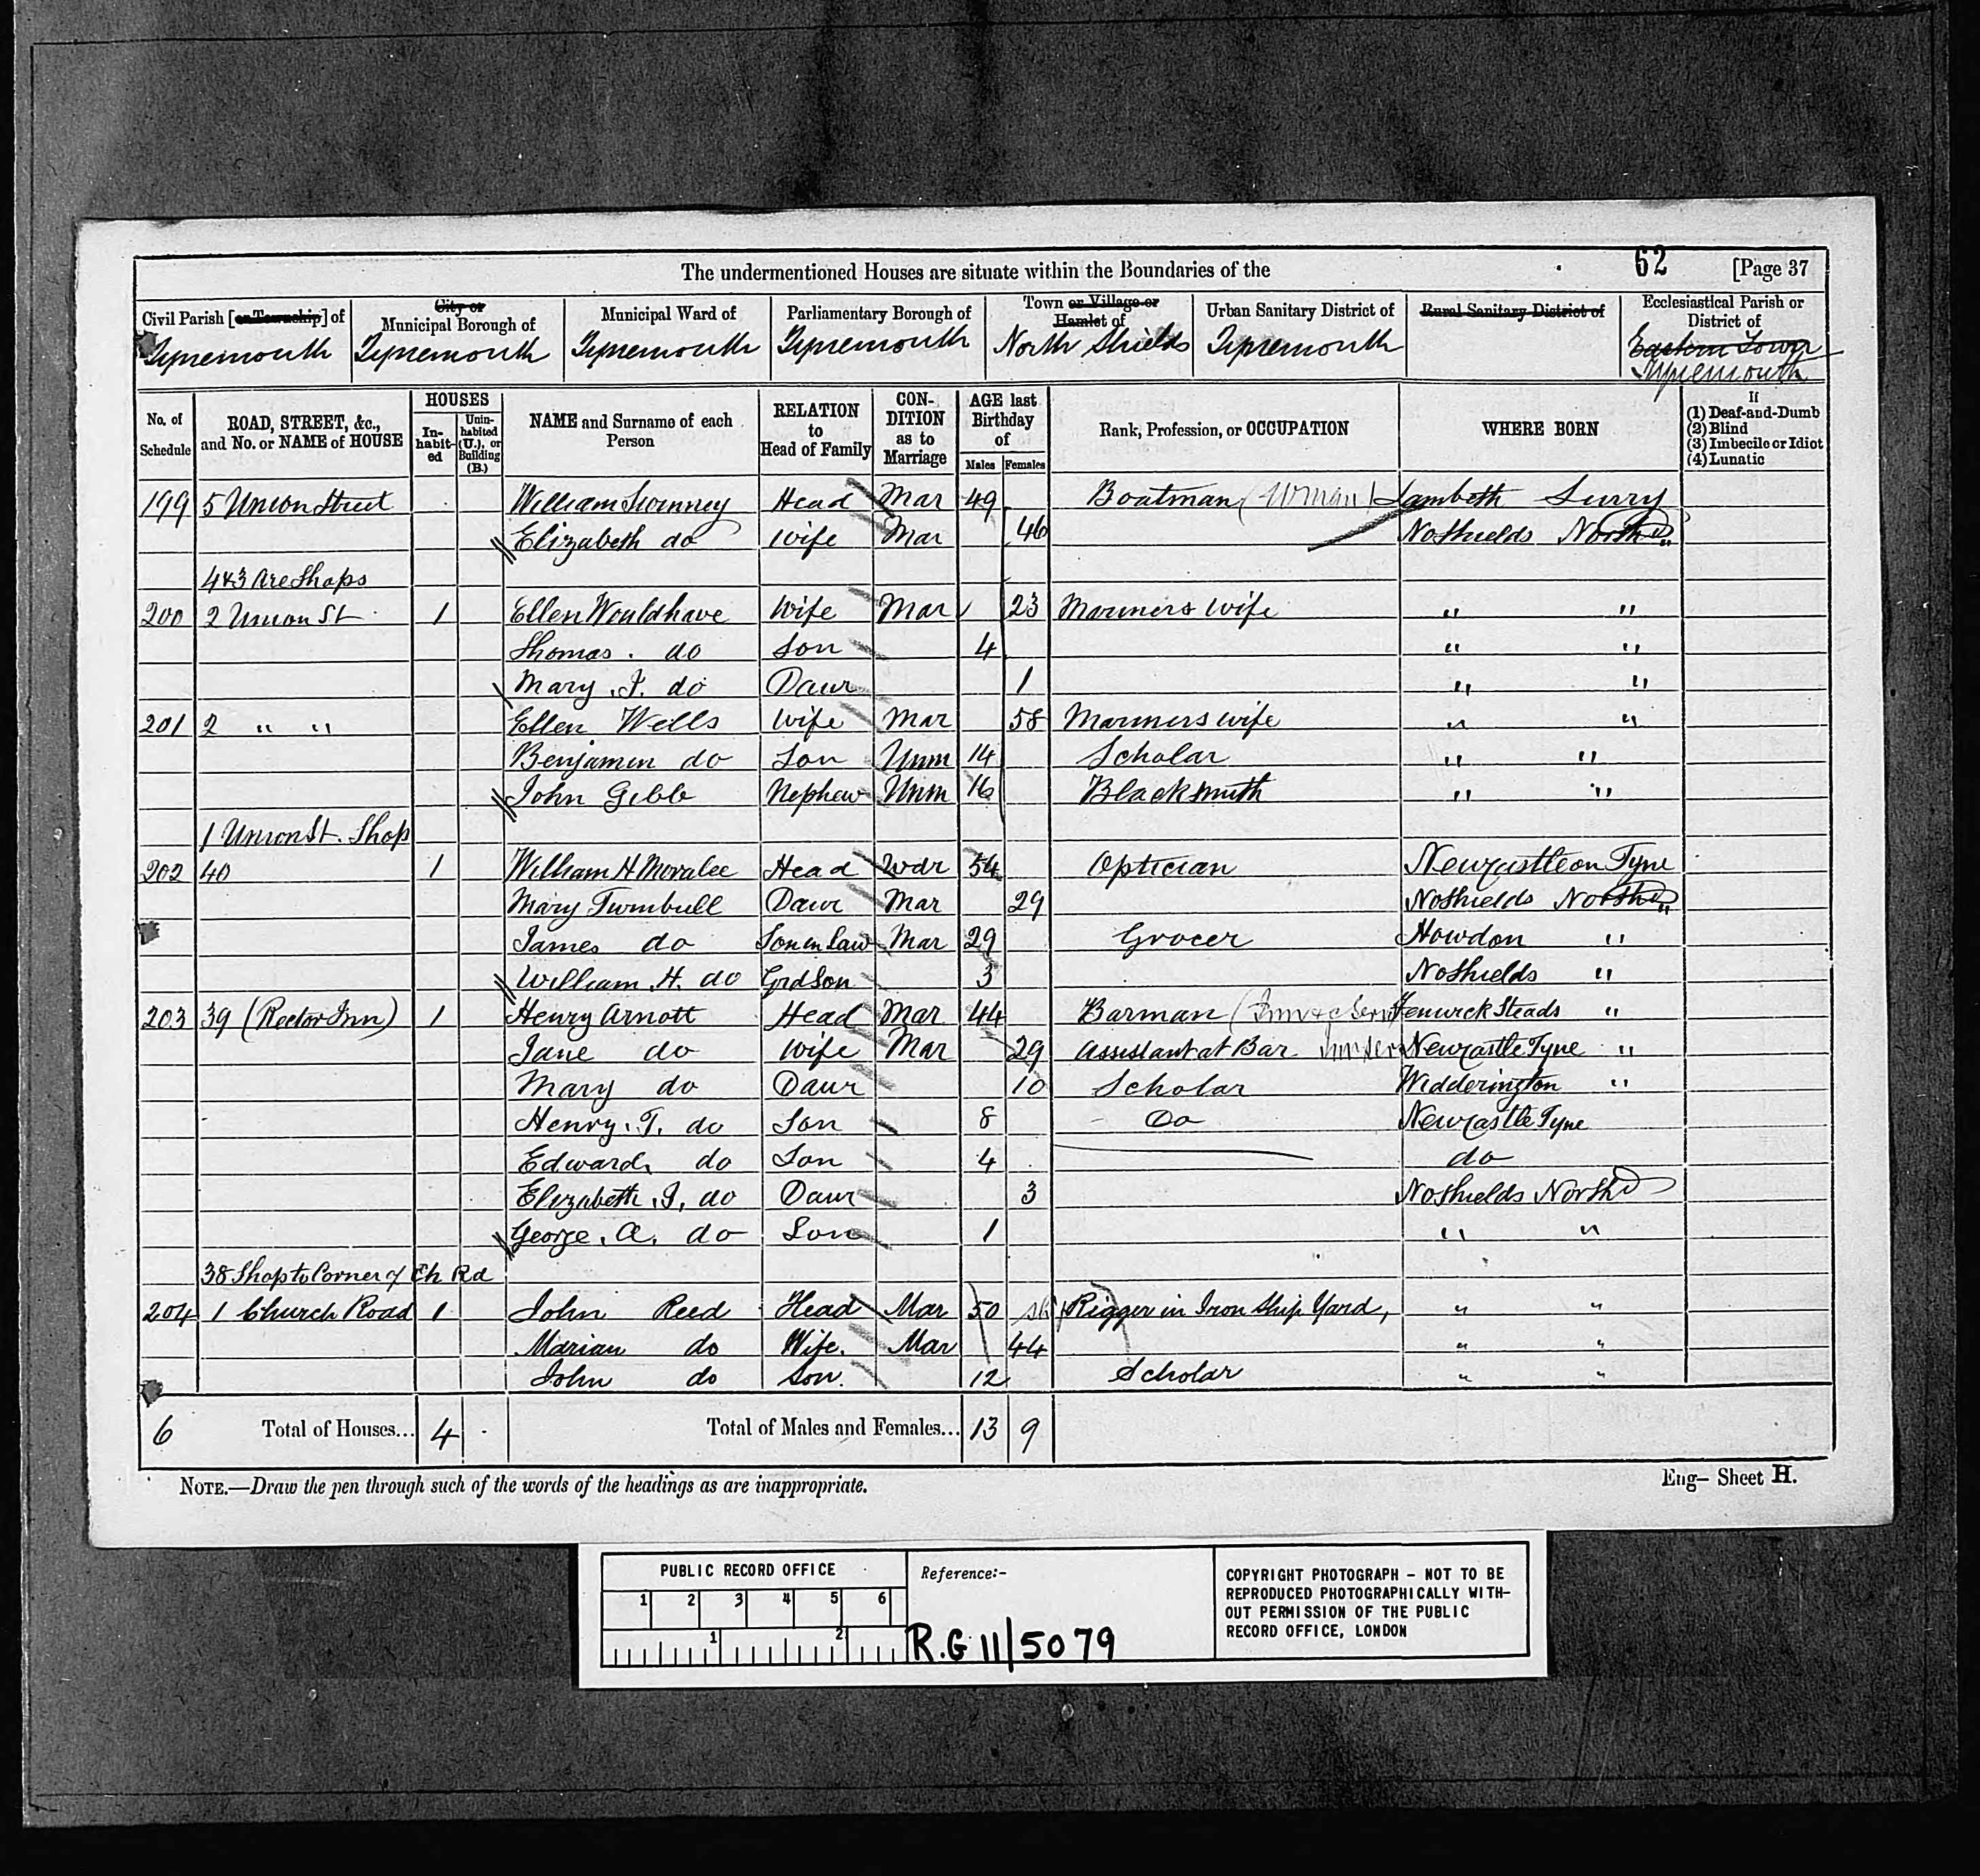 The undermentioned Houses are situate within the Boundaries of the 62 [Page 37
Civil Parish [or Township] of City or Municipal Borough of Municipal Ward of Parliamentary Borough of Town or Village or Hamlet of Urban Sanitary District of Rural Sanitary District of Ecclesiastical Parish or District of
Tynemouth Tynemouth Tynemouth Tynemouth North Shields Tynemouth Eastern Town
Tynemouth
No. of Schedule ROAD, STREET, &c., and No. or NAME of HOUSE HOUSES In-habit-ed Unin-habited (U.), or Building (B.) NAME and Surname of each Person RELATION to Head of Family CON-DITION as to Marriage AGE last Birthday of Males Females Rank, Profession, or OCCUPATION WHERE BORN If (1) Deaf-and-Dumb (2) Blind (3) Imbecile or Idiot (4) Lunatic
199 5 Union Street William Swinney Head Mar 49 Boatman Lambeth Surry
Elizabeth do Wife Mar 46 No Shields North d
4 & 3 Are Shops
200 2 Union St 1 Ellen Wouldhave Wife Mar 23 Mariners Wife " "
Thomas. do Son 4 " "
Mary. J. do Daur 1 " "
201 2 " " Ellen Wells Wife Mar 58 Mariners Wife " "
Benjamin do Son Unm 14 Scholar " "
John Gibb Nephew Unm 16 Blacksmith " "
1 Union St. Shop
202 40 1 William H Moralee Head Wdr 54 Optician Newcastle on Tyne
Mary Turnbull Daur Mar 29 No Shields North d
James do Son in Law Mar 29 Grocer Howdon "
William. H. do Grdson 3 No Shields "
203 39 (Rector Inn) 1 Henry Arnott Head Mar 44 Barman (Inn Fenwick Steads "
Jane do Wife Mar 29 Assistant at Bar Newcastle Tyne "
Mary do Daur 10 Scholar Widderington "
Henry. T. do Son 8 Do Newcastle Tyne
Edward. do Son 4 do
Elizabeth. J. do Daur 3 No Shields North d
George. A. do Son 1 " "
38 Shop to Corner of Ch Rd
204 1 Church Road 1 John Reed Head Mar 50 Rigger in Iron Ship Yard, " "
Marian do Wife. Mar 44 " "
John do Son. 12 Scholar " "
6 Total of Houses... 4 Total of Males and Females... 13 9
NOTE.—Draw the pen through such of the words of the headings as are inappropriate.
Eng- Sheet H.
PUBLIC RECORD OFFICE
1 2 3 4 5 6
1 2
Reference:-
R.G 11/5079
COPYRIGHT PHOTOGRAPH - NOT TO BE
REPRODUCED PHOTOGRAPHICALLY WITH-
OUT PERMISSION OF THE PUBLIC
RECORD OFFICE, LONDON